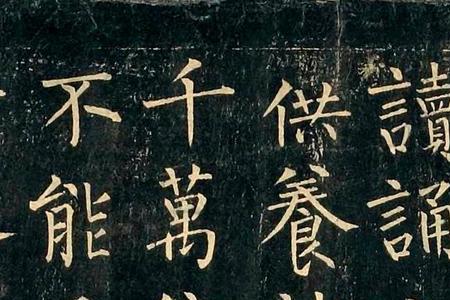 讀誦
供養
千萬
不能